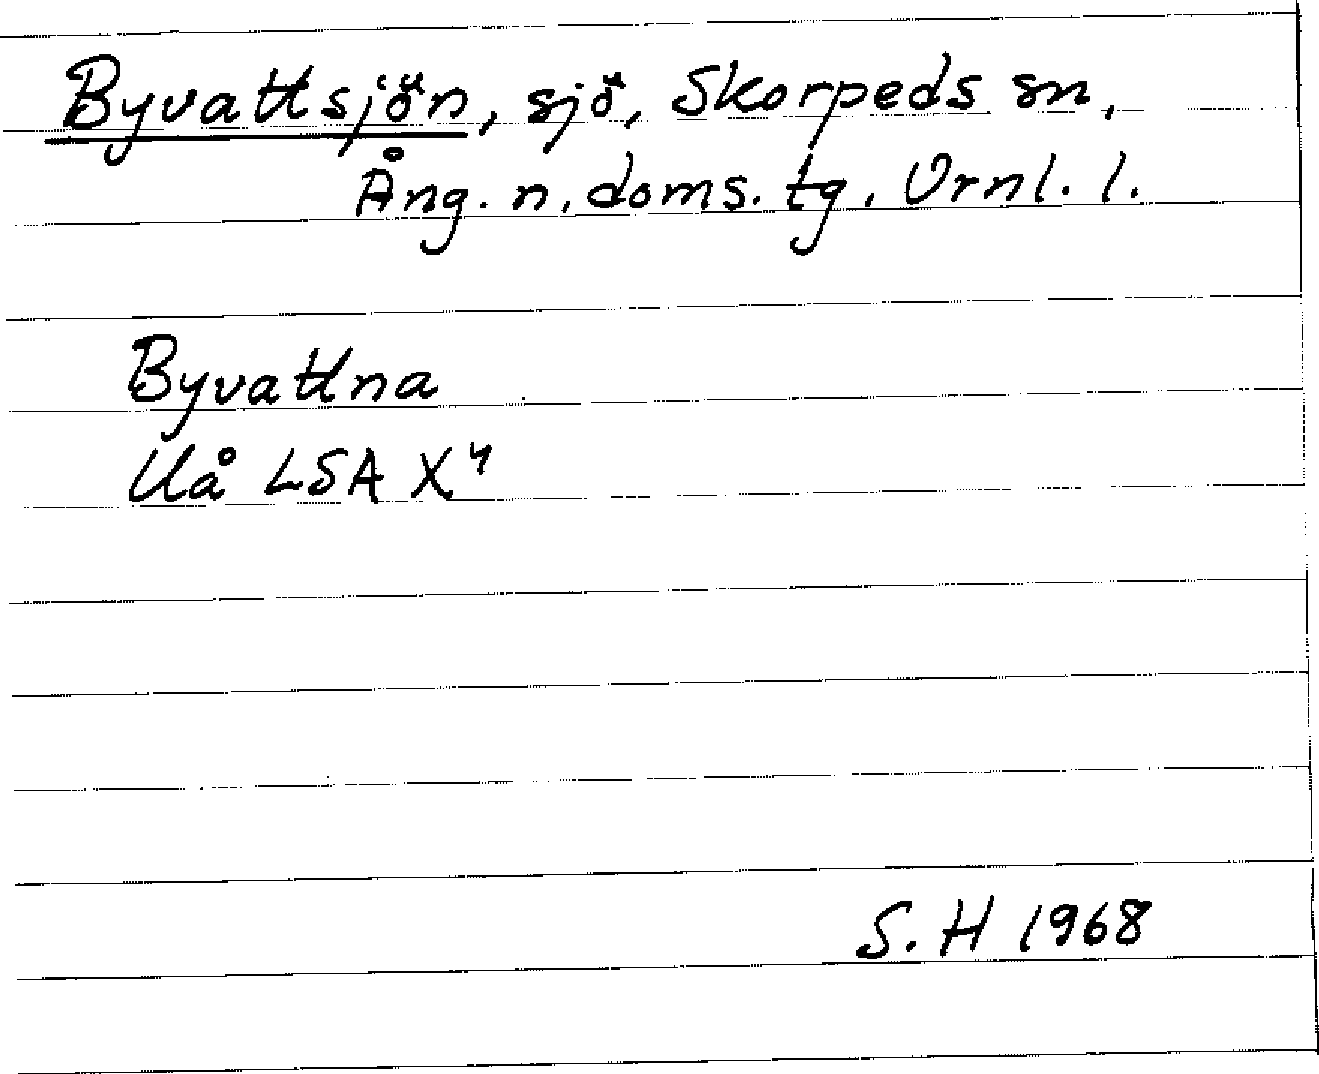 Byvattsjön, sjö, Skorpeds sn,
Ång. n. doms. tg. Örnl. l.
Byvattna
Uå LSA X⁴
S. H 1968